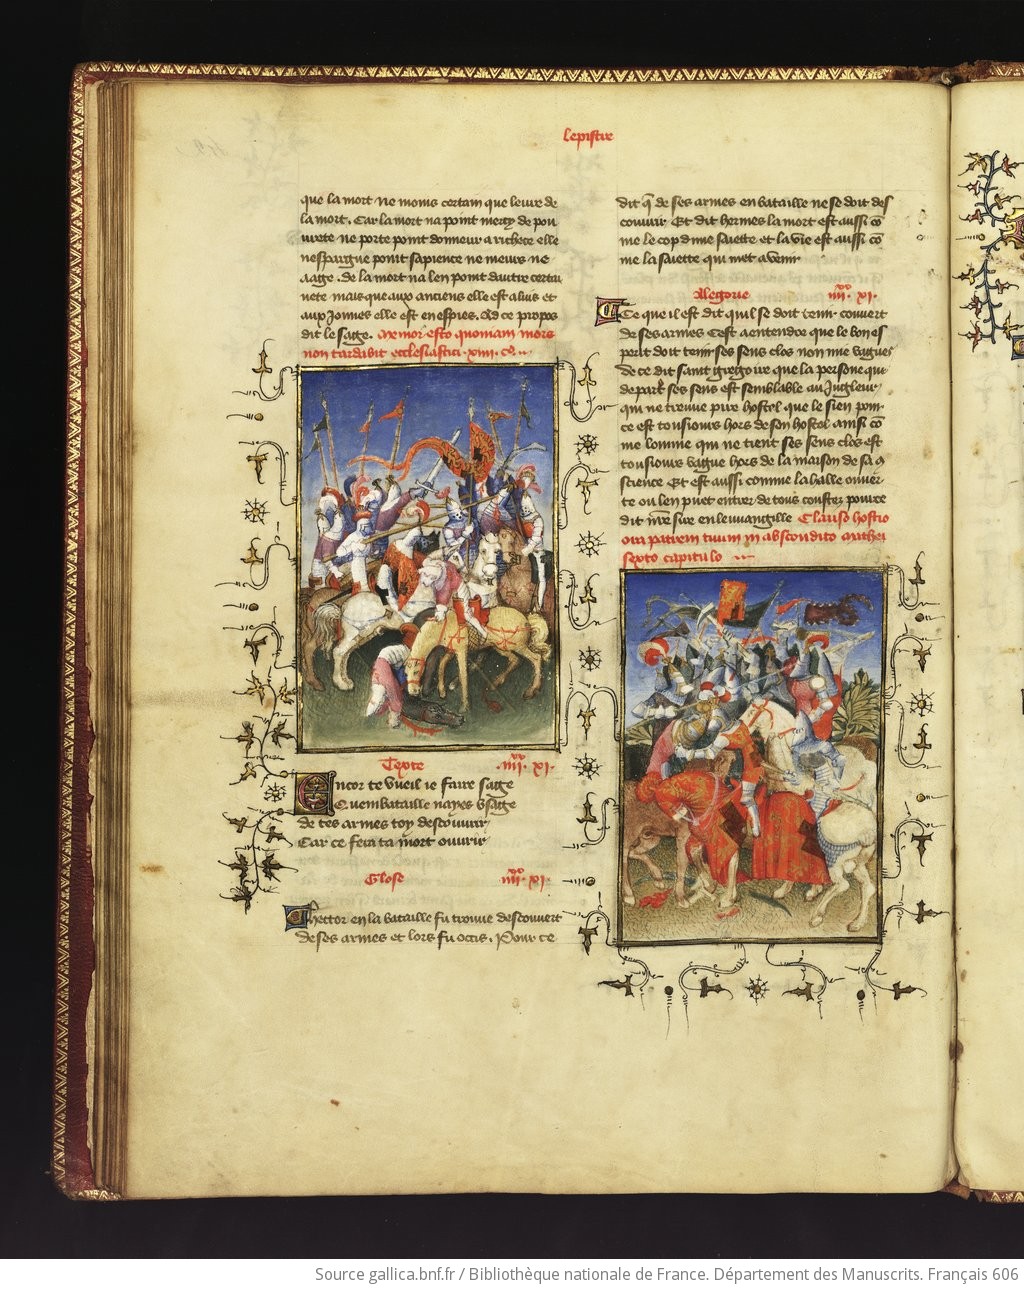 Lepistre
que la mort ne moins certain que leure de
la mort. Car la mort na point mercy de pou
urete ne porte point donneur a richece elle
nespargne point sapience ne meurs ne
aage. de la mort na len point dautre certai
nete mais que aux anciens elle est a luis et
aux jonnes elle est en espies. Ad ce propos
dit le sage. Memor esto quoniam mors
non tardabit ecclesiastici .xiiii. c.
Texte .iiii.xx xi.
Encor te vueil ie faire sage
Quen bataille nayes vsage
de tes armes toy descouurir
Car ce fera ta mort ouurir
Glose iiii.xx xi.
Hector en la bataille fu trouue descouuert
de ses armes et lors fu occis. Pour ce
dit q̃ de ses armes en bataille ne se doit des
couurir Et dit hermes la mort est aussi cõ
me le cop dune saiette et la vie est aussi cõ
me la saiette qui met a venir
Alegorie iiii.xx xi.
Ce que il est dit quil se doit tenir couuert
de ses armes cest a entendre que le bon es
perit doit tenir ses sens clos non mie vagues
de ce dit saint gregoire que la persone qui
depart ses sens est semblable au Jugleur
qui ne treuue pire hostel que le sien pour
ce est tousiours hors de son hostel ainsi cõ
me lomme qui ne tient ses sens clos est
tousiours vague hors de la maison de sa cõ
science Et est aussi comme la halle ouuer
te ou len puet entrer de tous costez pour ce
dit nr̃e sire en leuuangille Clauso hostio
ora patrem tuum in abscondito mathei
sexto capitulo
Source gallica.bnf.fr / Bibliothèque nationale de France. Département des Manuscrits. Français 606